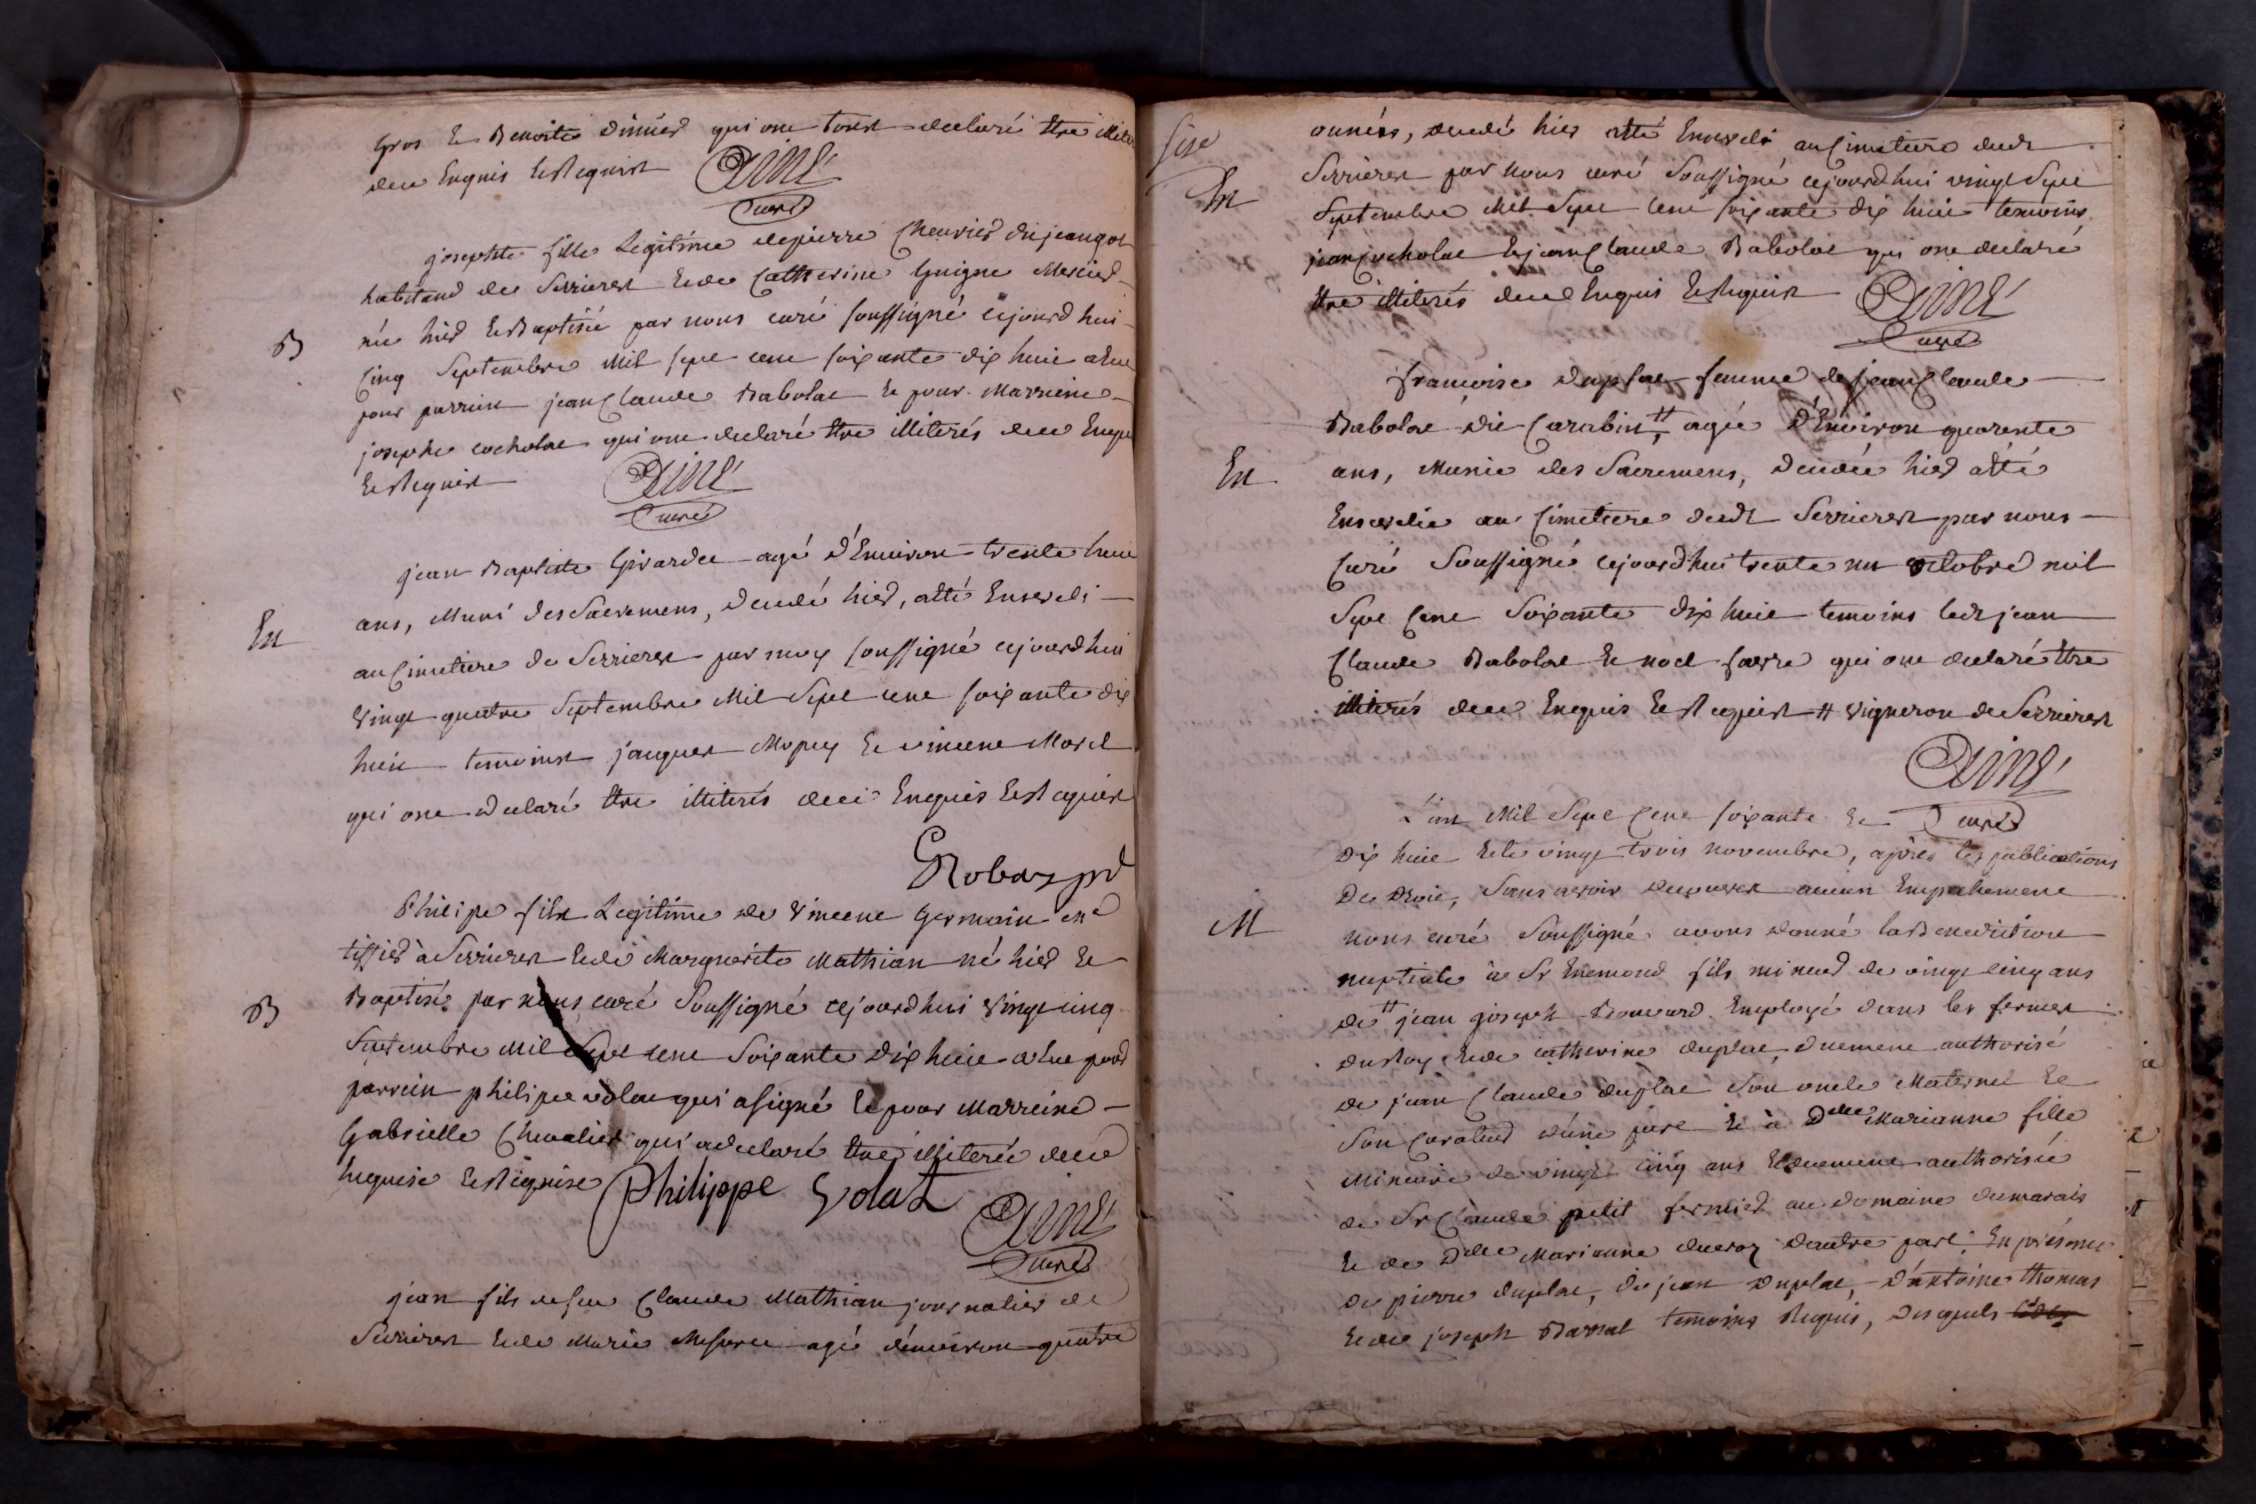 gros et Benoite dinier qui ont tous declaré être illite
dece Enquis et Requis Aimé
Curé
josephte fille Legitime de pierre Chevrier dit jeangot
habitand de Serrieres et de Catherine Guigne Mercier
née hier et Baptisée par nous curé soussigné cejourdhui
B
Cinq Septembre Mil sept cent soixante dix huit a Eue
pour parrein jean Claude Babolat et pour Marreine
josephe cocholat qui ont declaré être illiterés dece Enqui
et Requis Aimé
Curé
jean Baptiste Girardet agé d'Environ trente huit
ans, Muni des Sacremens, decedé hier, atté Enseveli
En
au Cimetiere de Serrieres par moy soussigné cejourdhui
vingt quatre Septembre Mil Sept cent soixante dix
huit temoins jacques Mopey et vincent Morel
qui ont declaré être illiterés dece Enquis et Requis
Philipe fils Legitime de Vincent Germain
tissier à Serrieres et de Marguerite Mathian né hier et
Baptisé par nous curé Soussigné cejourdhui vingt cinq
B
Septembre Mil Sept cent Soixante dix huit a Eue pour
parrein philipe volat qui a signé et pour Marreine
Gabrielle Chevalier qui a declaré être illiterée dece
Enquise et Requise Philippe Volat
Aimé
Curé
jean fils de feu Claude Mathian journalier de
Serrieres et de Marie agé d'environ quatre
années, decedé hier atté Enseveli au Cimetiere dudt
En
Serrieres par nous curé Soussigné cejourdhui vingt Sept
Septembre Mil Sept Cent soixante dix huit temoins
jean Cocholat et jean Claude Babolat qui ont declaré
être illiterés dece Enquis et Requis Aimé
Curé
francoise duplat femme de jean Claude
Babolat dit Carabin # agée d'Environ quarente
En
ans, Munie des Sacremens, decedée hier atté
Ensevelie au Cimetiere dudt Serrieres par nous
Curé Soussigné cejourdhui trente un octobre mil
Sept Cent Soixante dix huit temoins ledt jean
Claude Babolat et noel favre qui ont declaré être
illiterés dece Enquis et Requis # vigneron de Serrieres
Aimé
Curé
L'an Mil Sept Cent soixante et
dix huit et le vingt trois novembre, après les publications
De droit, Sans avoir decouvert aucun Empechement
M
nous curé Soussigné avons donné la Benediction
nuptiale à Sr Enemond fils mineur de vingt cinq ans
de # jean joseph Bouvard Employé dans les fermes
du Roy et de catherine duplat, duement authorisé
de jean Claude duplat son oncle Maternel et
Son Curateur d'une part et à Delle Marianne fille
Mineure de vingt cinq ans et duement authorisée
de Sr Claude petit fermier au domaine dumarais
et de Delle Marianne ducroz d'autre part. En présence
de pierre duplat, de jean duplat, d'antoine thomas
et de joseph Barral temoins Requis, desquels